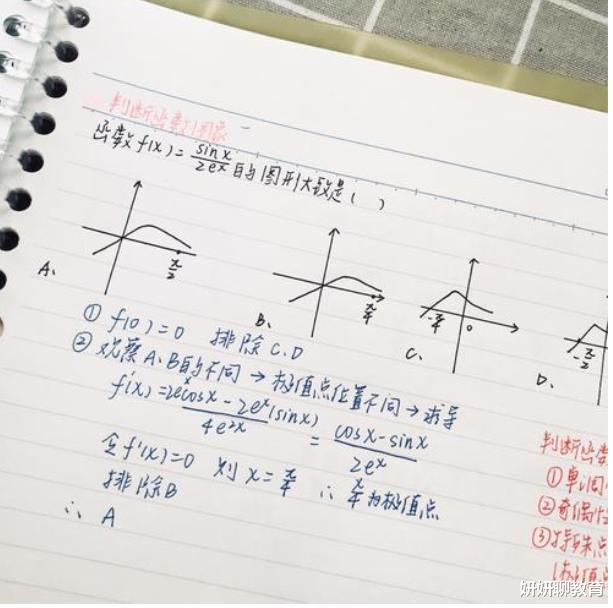 判断函数图象
函数f(x)=sinx/2eˣ的图形大致是( )
A.
π/2
B.
π/4
C.
-π/4
0
D.
-π/2
① f(0)=0 排除C.D
② 观察A.B的不同→极值点位置不同→求导
f'(x)=2eˣcosx-2eˣ(sinx)/4e²ˣ=cosx-sinx/2eˣ
令f'(x)=0 则x=π/4 ∴π/4为极值点
排除B
∴ A
判断函数
①单调
②奇偶性
③特殊点
(极值点
妍妍聊教育